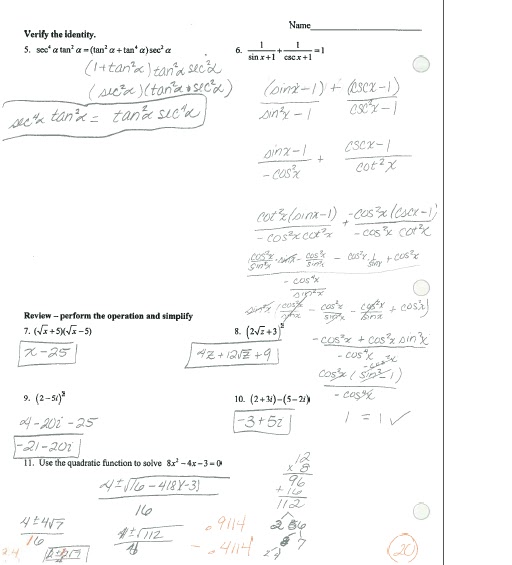 Name
Verify the identity.
5. sec⁴ α tan² α = (tan² α + tan⁴ α) sec² α
(1+tan²α) tan²α sec²α
(sec²α)(tan²α • sec²α)
sec⁴α tan²α = tan²α sec⁴α
6. 1/(sin x + 1) + 1/(csc x + 1) = 1
(sinx-1)/(sin²x - 1) + (cscx-1)/(csc²x - 1)
(sinx-1)/(-cos²x) + (cscx-1)/(cot²x)
(cot²x(sinx-1))/(-cos²x cot²x) + (-cos²x(cscx-1))/(-cos²x cot²x)
cos²x/sin²x · sinx - cos²x/sin²x - cos²x · 1/sinx + cos²x
-cos⁴x/sin²x
sin²x (cos²x/sinx - cos²x/sin²x - cos²x/sinx + cos²x)
-cos²x + cos²x sin²x
-cos⁴x
cos²x (sin²-1)
-cos²x
-cos⁴x
1 = 1 ✓
Review – perform the operation and simplify
7. (√x + 5)(√x - 5)
x - 25
8. (2√z + 3)²
4z + 12√z + 9
9. (2 - 5i)²
4 - 20i - 25
-21 - 20i
10. (2 + 3i) - (5 - 2i)
-3 + 5i
11. Use the quadratic function to solve 8x² - 4x - 3 = 0
4 ± √16 - 4(8)(-3)
16
4 ± 4√7
16
4 ± √112
.9114
-.4114
12
x 8
96
+ 16
112
2 56
7
20